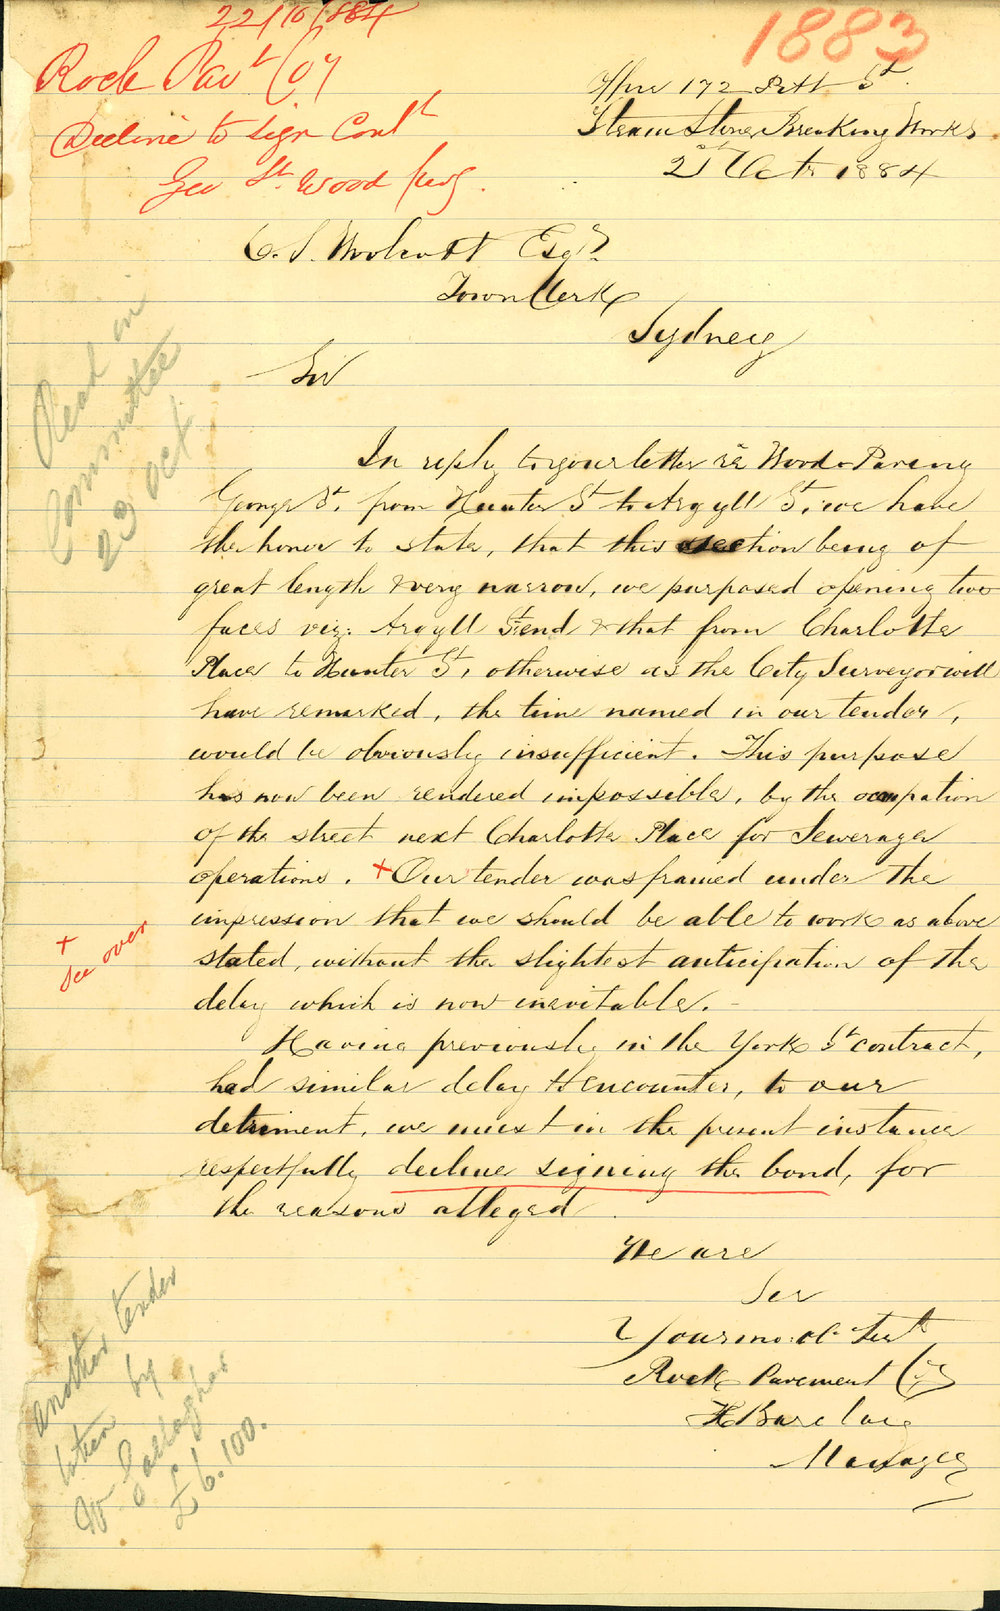 22/10/1884
1883
Rock Pavt Coy
Decline to sign Contt
Geo St. Wood pavg.
Office 172 Pitt St
Steam Stone Breaking Works
21st Octr 1884
C. S. Woolcott Esqr
Town Clerk
Sydney
Sir
Read in
Committee
23 Oct
In reply to your letter re Wood Paving
George St. from Hunter St to Argyll St, we have
the honor to state, that this section being of
great length & very narrow, we purposed opening two
faces viz: Argyll St end & that from Charlotte
Place to Hunter St, otherwise as the City Surveyor will
have remarked, the time named in our tender,
would be obviously insufficient. This purpose
has now been rendered impossible, by the occupation
of the street next Charlotte Place for Sewerage
operations. + Our tender was framed under the
impression that we should be able to work as above
stated, without the slightest anticipation of the
delay which is now inevitable. -
+
See over
Having previously in the York St contract,
had similar delay to encounter, to our
detriment, we must in the present instance
respectfully decline signing the bond, for
the reasons alleged
We are
Sir
Your mo: ob. Servt
Rock Pavement Coy
H Barclay
Manager
another tender
by
W Gallagher
£6.100.